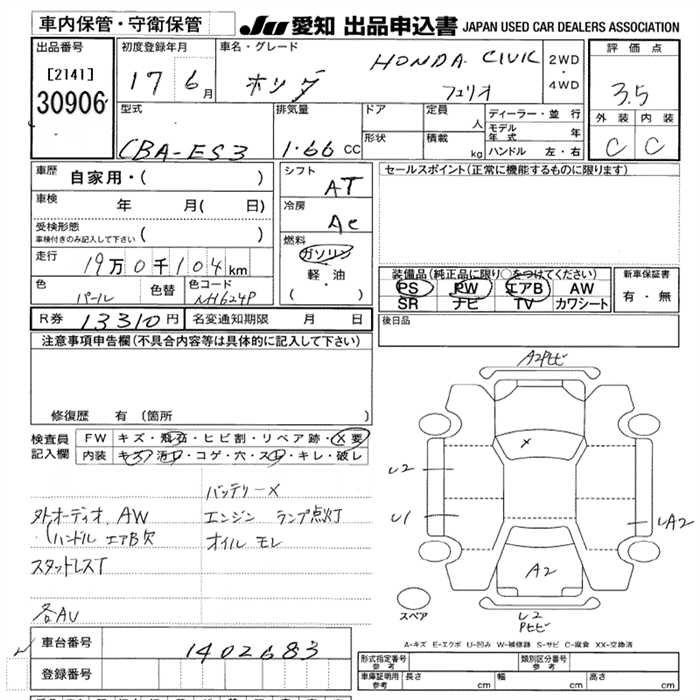 車内保管・守衛保管
JU 愛知 出品申込書 JAPAN USED CAR DEALERS ASSOCIATION
出品番号
[2141]
30906
初度登録年月
17 6月
車名・グレード
HONDA CIVIC
ホンダ フェリオ
2WD
・
4WD
評価点
3.5
外装 内装
C C
型式
CBA-ES3
排気量
1.66 CC
ドア
形状
定員 人
積載 kg
ディーラー・並行
モデル年式 年
ハンドル 左・右
車歴 自家用・( )
車検 年 月( 日)
受検形態
車検付きのみ記入して下さい ( )
走行 19万0千104km
色 パール 色替 色コード NH624P
シフト AT
冷房 AC
燃料
ガソリン
軽・油
( ・ )
セールスポイント(正常に機能するものに限ります)
装備品(純正品に限り○をつけてください)
PS PW エアB AW
SR ナビ TV カワシート
新車保証書
有・無
R券 13310円 名変通知期限 月 日
後日品
注意事項申告欄(不具合内容等は具体的に記入して下さい)
修復歴 有(箇所 )
検査員記入欄
FW キズ・飛石・ヒビ割・リペア跡・X要
内装 キズ・汚れ・コゲ・穴・スレ・キレ・破レ
バッテリーX
外オーディオ、AW エンジン ランプ点灯
(ハンドル エアB欠 オイル モレ
スタッドレスT
各AU
車台番号 1402683
登録番号
A2Pヒビ
X
U2
U1
UA2
A2
スペア
U2
Pヒビ
A-キズ E-エクボ U-凹み W-補修跡 S-サビ C-腐食 XX-交換済
形式指定番号 参考
類別区分番号 参考
車庫証明用 参考 長さ cm 幅 cm 高さ cm